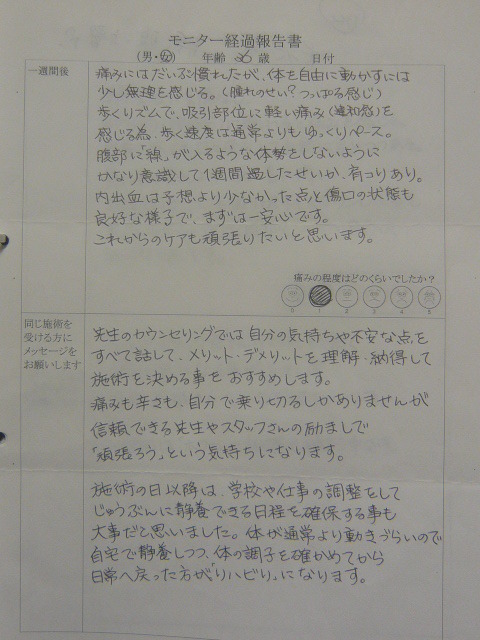 モニター経過報告書
(男・女) 年齢 26 歳 日付
一週間後
痛みにはだいぶ慣れたが、体を自由に動かすには
少し無理を感じる。(腫れのせい?つっぱる感じ)
歩くリズムで、吸引部位に軽い痛み(違和感)を
感じる為、歩く速度は通常よりもゆっくりペース。
腹部に「線」が入るような体勢をしないように
かなり意識して1週間過したせいか、肩コリあり。
内出血は予想より少なかった点と傷口の状態も
良好な様子で、まずは一安心です。
これからのケアも頑張りたいと思います。
痛みの程度はどのくらいでしたか?
0 1 2 3 4 5
同じ施術を
受ける方に
メッセージを
お願いします
先生のカウンセリングでは自分の気持ちや不安な点を
すべて話して、メリット・デメリットを理解・納得して
施術を決める事をおすすめします。
痛みも辛さも、自分で乗り切るしかありませんが
信頼できる先生やスタッフさんの励ましで
「頑張ろう」という気持ちになります。
施術の日以降は、学校や仕事の調整をして
じゅうぶんに静養できる日程を確保する事も
大事だと思いました。体が通常より動きづらいので
自宅で静養しつつ、体の調子を確かめてから
日常へ戻った方が「リハビリ」になります。